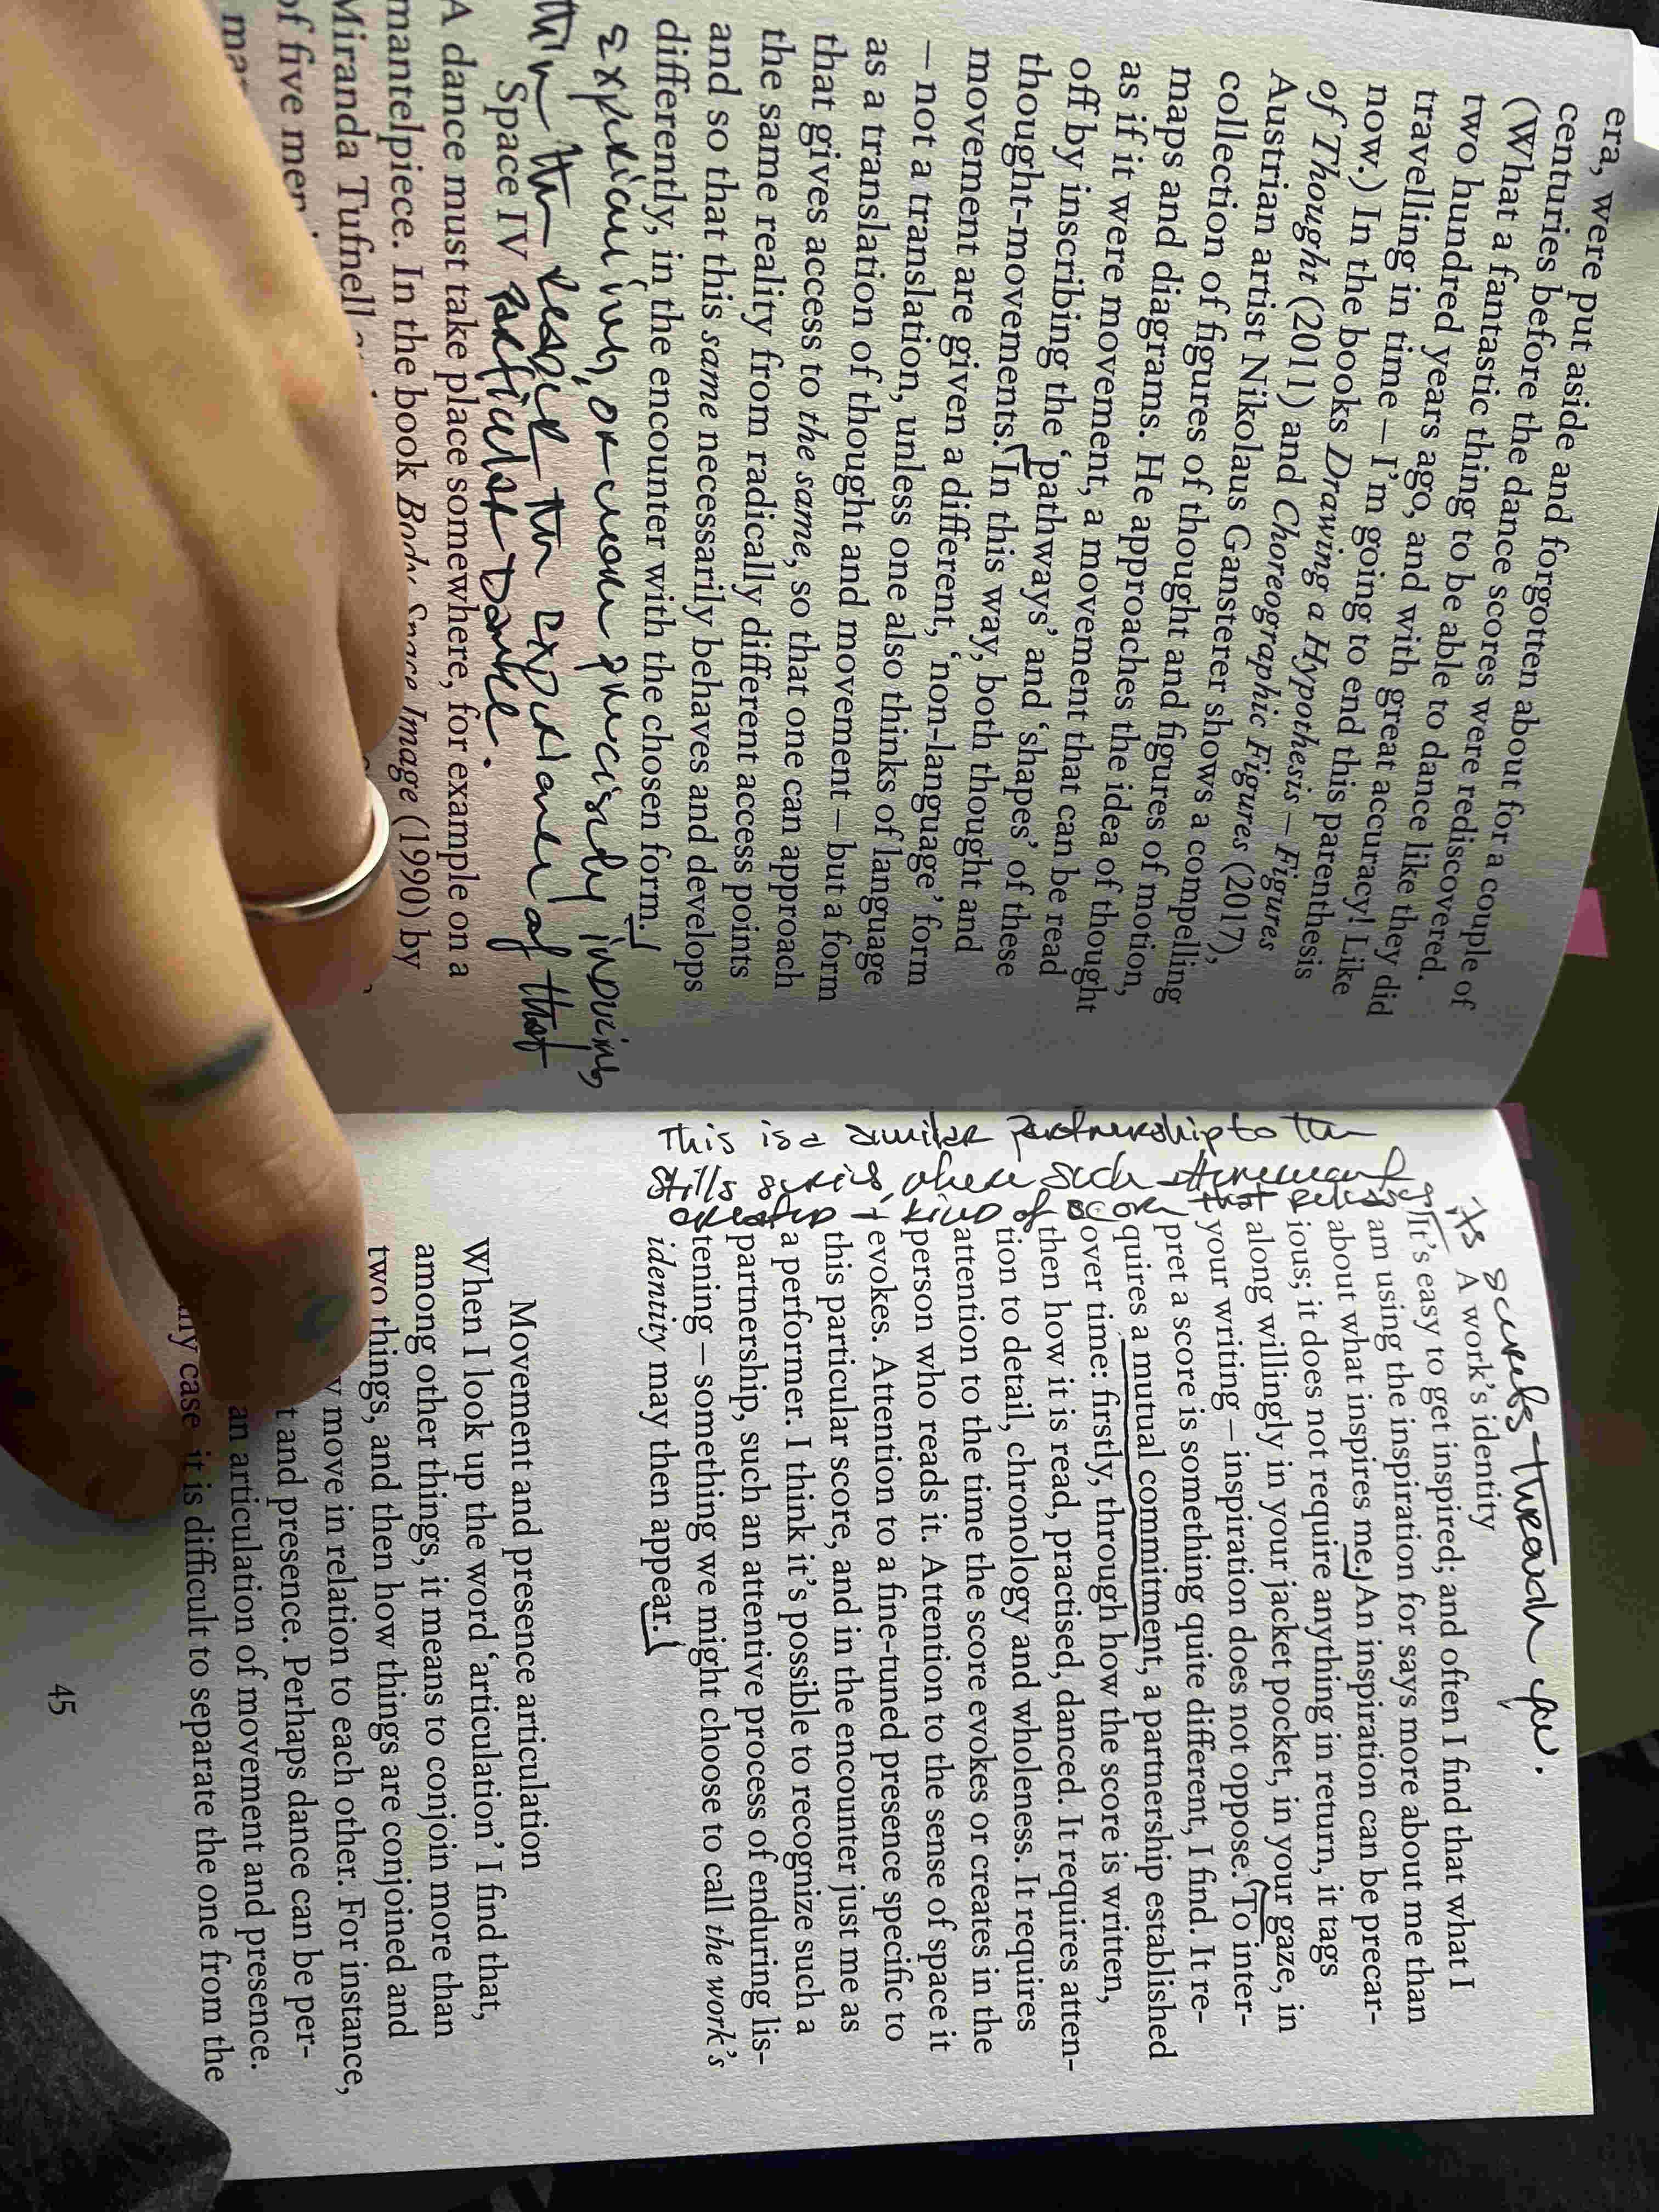 era, were put aside and forgotten about for a couple of
centuries before the dance scores were rediscovered.
(What a fantastic thing to be able to dance like they did
two hundred years ago, and with great accuracy! Like
travelling in time – I'm going to end this parenthesis
now.) In the books Drawing a Hypothesis – Figures
of Thought (2011) and Choreographic Figures (2017),
Austrian artist Nikolaus Gansterer shows a compelling
collection of figures of thought and figures of motion,
maps and diagrams. He approaches the idea of thought
as if it were movement, a movement that can be read
off by inscribing the 'pathways' and 'shapes' of these
thought-movements. In this way, both thought and
movement are given a different, 'non-language' form
– not a translation, unless one also thinks of language
as a translation of thought and movement – but a form
that gives access to the same, so that one can approach
the same reality from radically different access points
and so that this same necessarily behaves and develops
differently, in the encounter with the chosen form.
experiencing, or more precisely inducing
the experience of that
Space IV particular dance.
A dance must take place somewhere, for example on a
mantelpiece. In the book Body Space Image (1990) by
Miranda Tufnell
of five men
its scores through you.
This is a similar partnership to the
stills series, where such
creates a kind of score that
A work's identity
It's easy to get inspired; and often I find that what I
am using the inspiration for says more about me than
about what inspires me. An inspiration can be precar-
ious; it does not require anything in return, it tags
along willingly in your jacket pocket, in your gaze, in
your writing – inspiration does not oppose. To inter-
pret a score is something quite different, I find. It re-
quires a mutual commitment, a partnership established
over time: firstly, through how the score is written,
then how it is read, practised, danced. It requires atten-
tion to detail, chronology and wholeness. It requires
attention to the time the score evokes or creates in the
person who reads it. Attention to the sense of space it
evokes. Attention to a fine-tuned presence specific to
this particular score, and in the encounter just me as
a performer. I think it's possible to recognize such a
partnership, such an attentive process of enduring lis-
tening – something we might choose to call the work's
identity may then appear.
Movement and presence articulation
When I look up the word 'articulation' I find that,
among other things, it means to conjoin more than
two things, and then how things are conjoined and
move in relation to each other. For instance,
t and presence. Perhaps dance can be per-
an articulation of movement and presence.
ny case it is difficult to separate the one from the
45